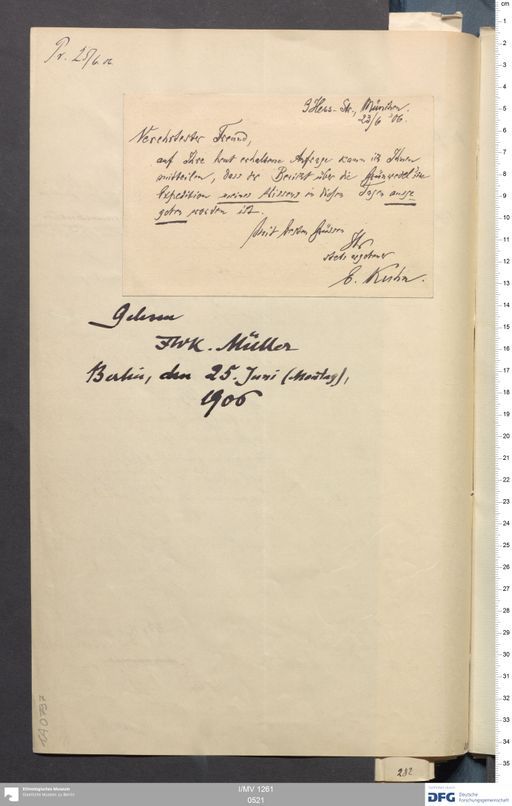 Pr. 25/6.06
3 Hess-Str., München.
23/6 '06.
Verehrtester Freund,
auf Ihre heut erhaltene Anfrage kann ich Ihnen
mitteilen, dass der Bericht über die Grünwedel'sche
Expedition meines Wissens in diesen Tagen ausge
geben worden ist.
Mit besten Grüssen
Ihr
stets ergebener
E. Kuhn.
Gelesen
FWK. Müller
Berlin, den 25. Juni (Montag),
1906
202
Ethnologisches Museum
Staatliche Museen zu Berlin
I/MV 1261
0521
DFG Deutsche
Forschungsgemeinschaft
cm
1
2
3
4
5
6
7
8
9
10
11
12
13
14
15
16
17
18
19
20
21
22
23
24
25
26
27
28
29
30
31
32
33
34
35